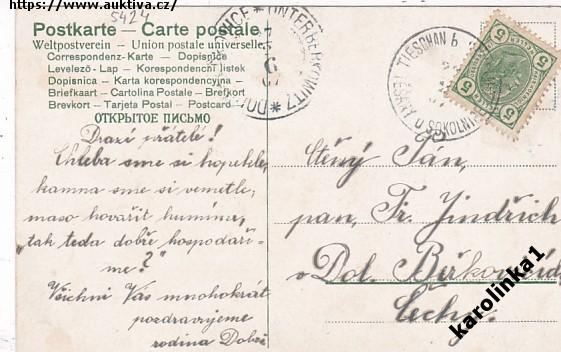 https://www.auktiva.cz/
5424
Postkarte — Carte postale
Weltpostverein - Union postale universelle
Correspondenz-Karte — Dopisnice
Levelező-Lap — Korespondenční listek
Dopisnica — Karta korespondencyjna -
Briefkaart - Cartolina Postale - Brefkort
Brevkort - Tarjeta Postal - Postcard
ОТКРЫТОЕ ПИСЬМО
UNTERBERKOWITZ
TIESCHAN b
U SOKOLNI
5 5
5 5
Drazí přátelé!
Chleba sme si
kamna sme si
maso
"tak teda dobře hospodaří-
me?"
Všichni Vás mnohokrát
pozdravujeme
rodina
Ctěný Pán,
pan, Fr. Jindřich
v Dol.
Čechy
karolinka1